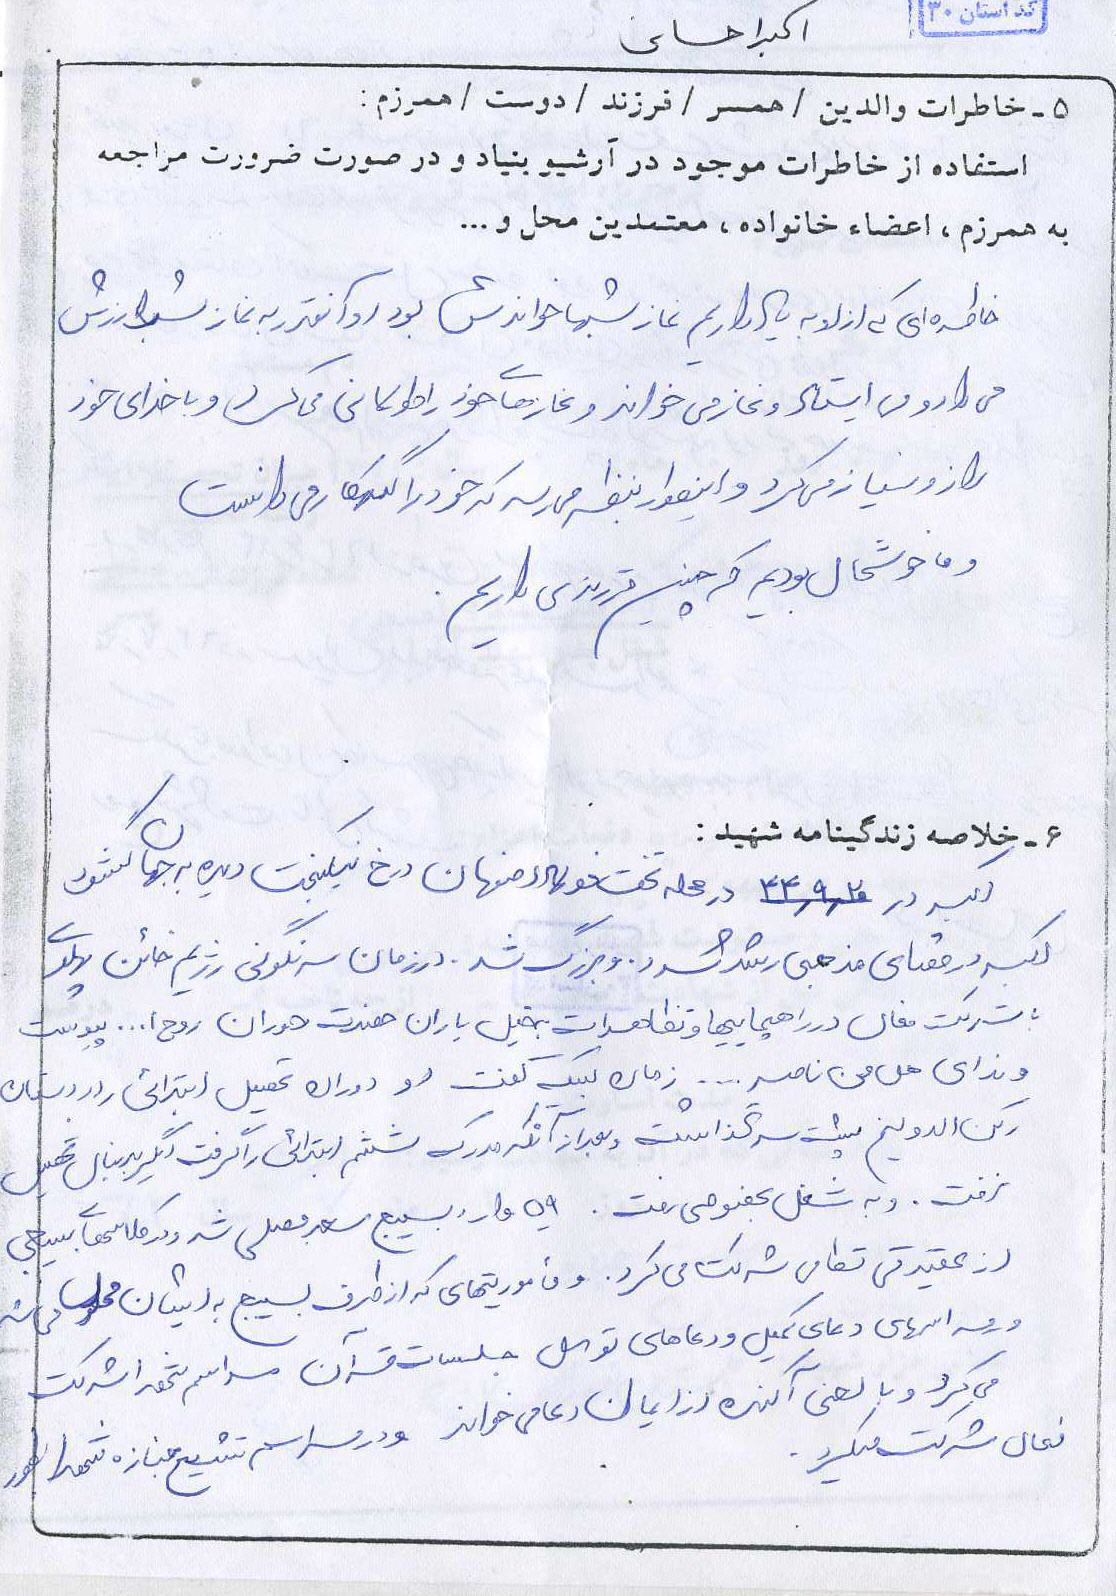 کد استان ۳۰
اکبر احسانی
۵ - خاطرات والدین / همسر / فرزند / دوست / همرزم :
استفاده از خاطرات موجود در آرشیو بنیاد و در صورت ضرورت مراجعه
به همرزم ، اعضاء خانواده ، معتمدین محل و ...
خاطره‌ای که از او به یاد داریم نماز شبها خواندنش بود او آنقدر به نماز شب ارزش
می داد و می ایستاد و نماز می خواند و نمازهای خود را طولانی می کرد و با خدای خود
راز و نیاز می کرد و اینطور بنظر می رسه که خود را گنهکار می دانست
و ما خوشحال بودیم که چنین فرزندی داریم .
۶ - خلاصه زندگینامه شهید :
اکبر در ۳۴٫۹٫۲ در محله تخت فولاد اصفهان در خ نیکبخت دیده به جهان گشود
اکبر در فضای مذهبی رشد کرد . و بزرگ شد . در زمان سرنگونی رژیم خائن پهلوی
با شرکت فعال در راهپیماییها و تظاهرات بخیل یاران حضرت روح ا... پیوست
و ندای هل من ناصر .... زمان لبیک گفت او دوران تحصیل ابتدائی را در دبستان
رکن الدوله پشت سر گذاشت و بعد از آنکه مدرک ششم ابتدائی را گرفت دیگر بدنبال تحصیل
نرفت . و به شغل رفت . ۵۹ وارد بسیج شد و در کلاسهای بسیج
از عقیدتی نظامی شرکت می کرد . و مأموریتهای که از طرف بسیج به ایشان محول می شد
در مراسمهای دعای کمیل و دعاهای توسل جلسات قرآن مراسم شهدا شرکت
می کرد و با لحنی آکنده از ایمان دعا می خواند و در مراسم تشییع جنازه شهدا بطور
فعال شرکت میکرد .